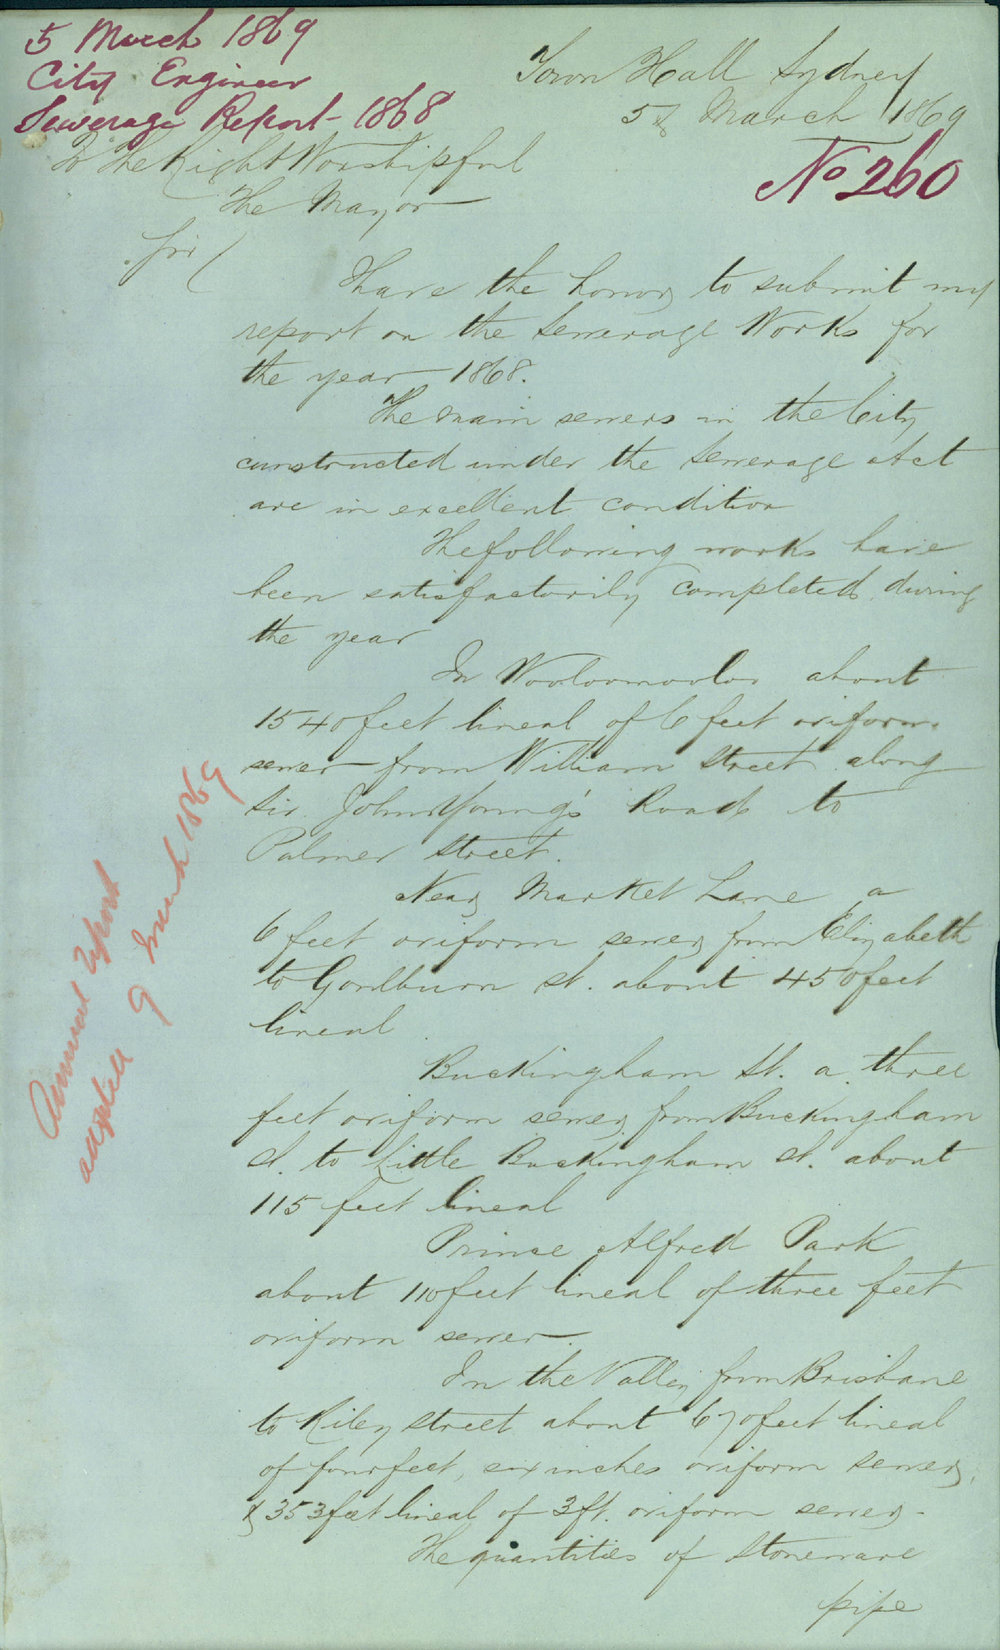 5 March 1869
City Engineer
Sewerage Report - 1868
Town Hall Sydney
5th March 1869
No 260
To The Right Worshipful
The Mayor
Sir
I have the honor to submit my
report on the Sewerage Works for
the year 1868.
The main sewers in the City
constructed under the Sewerage Act
are in excellent condition
The following works have
been satisfactorily completed during
the year
In Wooloomooloo about
1540 feet lineal of 6 feet oviform
sewer from William Street along
Sir John Young's Road to
Palmer Street.
Near Market Lane a
6 feet oviform sewer from Elizabeth
to Goulburn St. about 450 feet
lineal
Buckingham St. a three
feet oviform sewer from Buckingham
St. to Little Buckingham St. about
115 feet lineal
Prince Alfred Park
about 110 feet lineal of three feet
oviform sewer.
In the Valley from Brisbane
to Riley Street about 670 feet lineal
of four feet, six inches oviform sewer,
& 353 feet lineal of 3 ft. oviform sewer -
The quantities of Stoneware
pipe
Annual report
adopted 9 March 1869